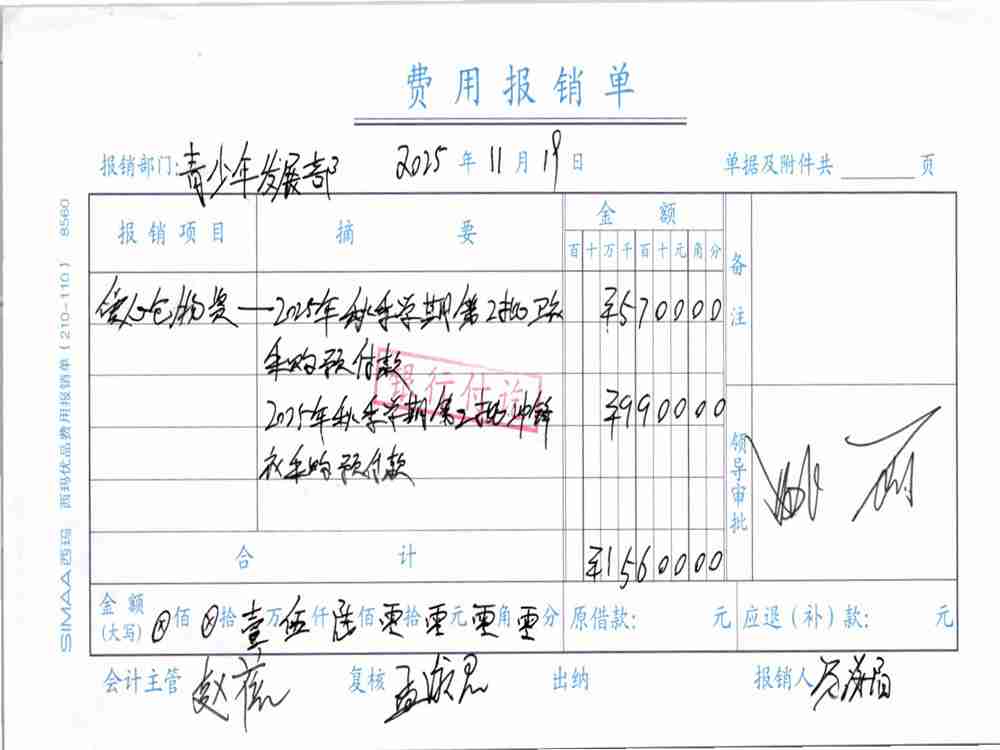 费用报销单
报销部门: 青少年发展部 2025 年 11 月 19 日 单据及附件共 页
报销项目 摘要 金额 备注
百十万千百十元角分
爱心包物资 — 2025年秋季学期第2批卫衣 ¥570000
采购预付款
银行付讫
2025年秋季学期第2批冲锋 ¥990000
衣采购预付款
领导审批
合计 ¥1560000
金额(大写) ⊗佰⊗拾壹万伍仟陆佰零拾零元零角零分 原借款: 元 应退(补)款: 元
会计主管 赵 复核 孟 出纳 报销人
SIMAA西玛 西玛优品费用报销单(210-110) 8560